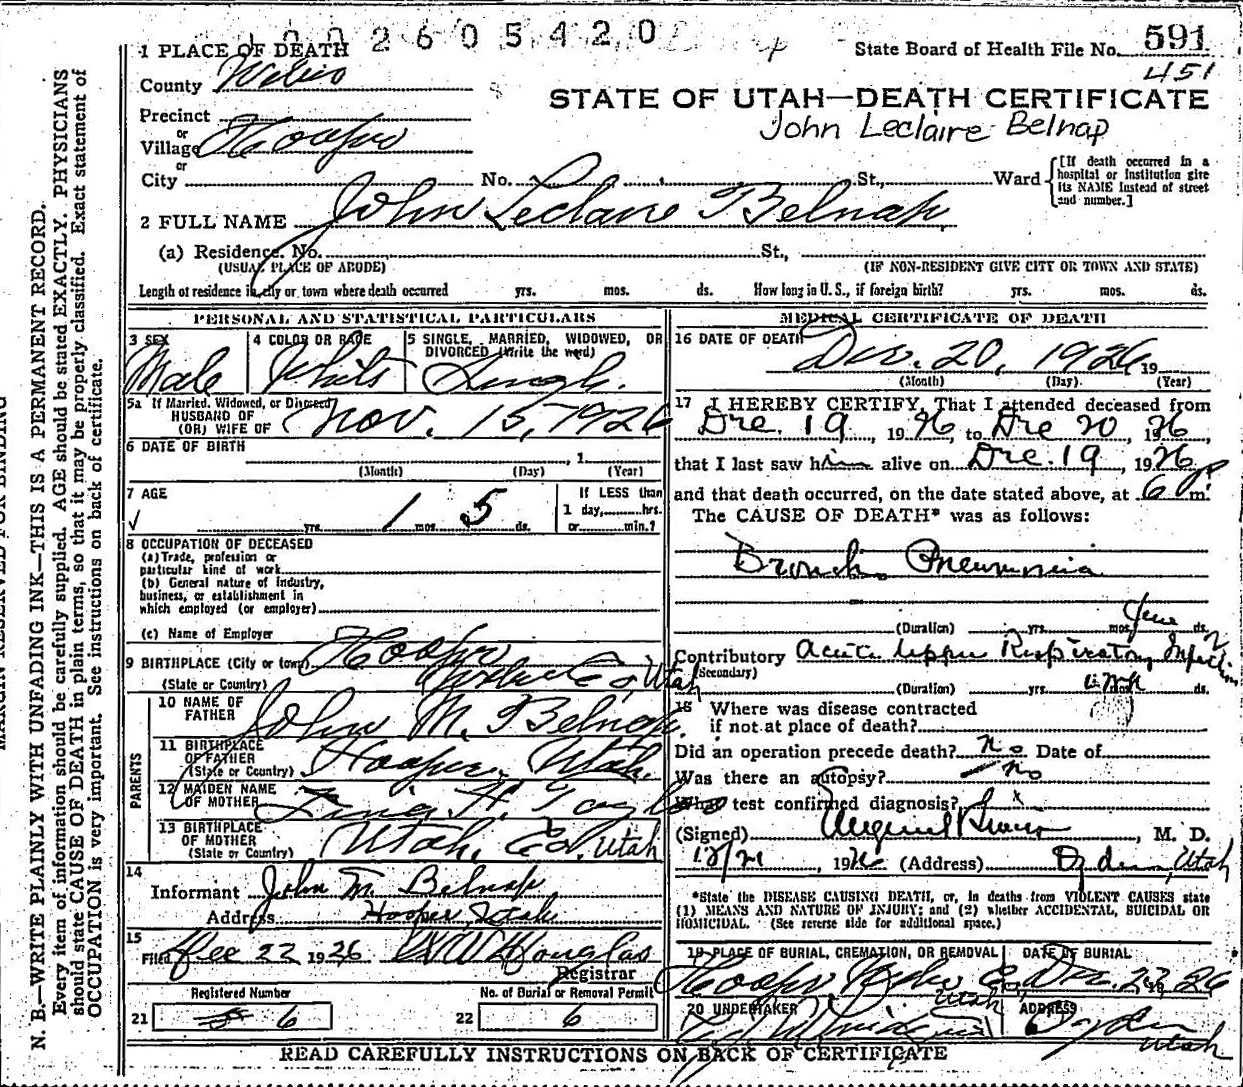 1 0 0 2 6 0 5 4 2 0
1 PLACE OF DEATH
State Board of Health File No. 591
451
County
STATE OF UTAH—DEATH CERTIFICATE
John Leclaire Belnap
Precinct
or
Village Hooper
or
City No. St., Ward
[If death occurred in a hospital or institution give its NAME instead of street and number.]
2 FULL NAME John Leclaire Belnap
(a) Residence. No. St.,
(USUAL PLACE OF ABODE) (IF NON-RESIDENT GIVE CITY OR TOWN AND STATE)
Length of residence in city or town where death occurred yrs. mos. ds. How long in U. S., if foreign birth? yrs. mos. ds.
MARGIN RESERVED FOR BINDING
N. B.—WRITE PLAINLY WITH UNFADING INK—THIS IS A PERMANENT RECORD.
Every item of information should be carefully supplied. AGE should be stated EXACTLY. PHYSICIANS
should state CAUSE OF DEATH in plain terms, so that it may be properly classified. Exact statement of
OCCUPATION is very important. See instructions on back of certificate.
PERSONAL AND STATISTICAL PARTICULARS
3 SEX Male
4 COLOR OR RACE White
5 SINGLE, MARRIED, WIDOWED, OR DIVORCED (Write the word) Single.
5a If Married, Widowed, or Divorced
HUSBAND OF
(OR) WIFE OF
Nov. 15, 1926
6 DATE OF BIRTH , 1
(Month) (Day) (Year)
7 AGE
yrs. 1 mos. 5 ds.
If LESS than
1 day, hrs.
or min.?
8 OCCUPATION OF DECEASED
(a) Trade, profession or
particular kind of work
(b) General nature of industry,
business, or establishment in
which employed (or employer)
(c) Name of Employer
9 BIRTHPLACE (City or town) Hooper
(State or Country) Weber Co, Utah
PARENTS
10 NAME OF FATHER John M. Belnap.
11 BIRTHPLACE OF FATHER (State or Country) Hooper, Utah.
12 MAIDEN NAME OF MOTHER
13 BIRTHPLACE OF MOTHER (State or Country) Utah, Co. Utah
14
Informant John M. Belnap
Address Hooper, Utah
15
Filed Dec 22 1926 Douglas
Registrar
Registered Number
21 6
No. of Burial or Removal Permit
22 6
MEDICAL CERTIFICATE OF DEATH
16 DATE OF DEATH Dec. 20, 1926 19
(Month) (Day) (Year)
17 I HEREBY CERTIFY, That I attended deceased from
Dec. 19, 1926, to Dec 20, 1926,
that I last saw him alive on Dec. 19, 1926
and that death occurred, on the date stated above, at 6 p m.
The CAUSE OF DEATH* was as follows:
Broncho Pneumonia
(Duration) yrs. mos. ds.
Contributory Acute Upper Respiratory Infection
(Secondary)
(Duration) yrs. ds.
18 Where was disease contracted
if not at place of death?
Did an operation precede death? No Date of
Was there an autopsy? No
What test confirmed diagnosis?
(Signed) , M. D.
12/21, 1926 (Address) Ogden, Utah
*State the DISEASE CAUSING DEATH, or, in deaths from VIOLENT CAUSES state
(1) MEANS AND NATURE OF INJURY; and (2) whether ACCIDENTAL, SUICIDAL OR
HOMICIDAL. (See reverse side for additional space.)
19 PLACE OF BURIAL, CREMATION, OR REMOVAL
Hooper Weber Co, Utah
DATE OF BURIAL
Dec. 22 26
20 UNDERTAKER
ADDRESS
Ogden Utah
READ CAREFULLY INSTRUCTIONS ON BACK OF CERTIFICATE